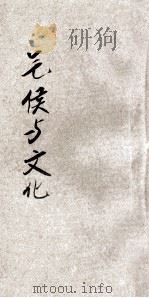 研狗
气候与文化
mtoou.info